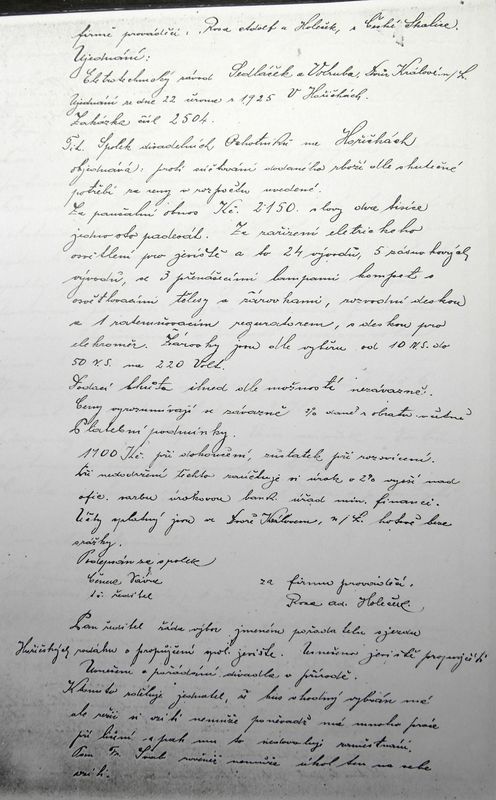 firmě provádějící: Rosa Adolf a Holeček, v České Skalice.
Ujednání:
Elektrotechnický závod Sedláček a Votruba, Dvůr Králové n/L.
Ujednání ze dne 22 února r 1925 V Hořičkách.
Zakázka čísl 2504.
Tit. Spolek divadelních Ochotníků na Hořičkách
objednává: proti súčtování dodaného zboží dle skutečné
potřeby za ceny v rozpočtu uvedené.
Za paušalní obnos Kč. 2150. slovy dva tisíce
jednosto padesát. Za zařízení elektrického
osvětlení pro jeviště a to 24 vývodů, 5 zásuvkových
vývodů, se 3 přenášecími lampami kompet s
osvětlovacími telesy a žárovkami, rozvodní deskou
s 1 regurátorem, s deskou pro
elekroměr. Žárovky jsou dle výběru od 10 N.S. do
50 N.S. na 220 Volt.
Dodací lhůta ihned dle možnosti nezávazně.
Ceny vyrozumívají se závazně % daně z obratu včetně
Platební podmínky.
1100 Kč. při dokončení, zůstatek při rozsvícení.
Při nedodržení těchto súčtuje si úrok o 2% vyšší nad
ofic. sazbu úrokovou bank. úřad min. financí.
Účty splatný jsou ve Dvoře Královém, n/L. hotově beze
srážky.
Podepsán za spolek
Čeněk Vávra za firmu provádějící.
t. č. ředitel Rosa ad. Holeček.
Pan ředitel žádá výbor jmenem pořadatelu sjezdu
Hořičkých rodáku o propůjčení spol. jeviště. Usneseno jeviště propujčiti
Usneseno o pořádání divadla v přírodě.
K tomuto sděluje jednatel, že kus vhodný vybrán má
ale režii si vzíti nemůže poněvadž má mnoho práce
při a pak mu to nedovoluje zaměstnání.
Pan Fr. rovněž nemůže úkol ten na sebe
vzíti.